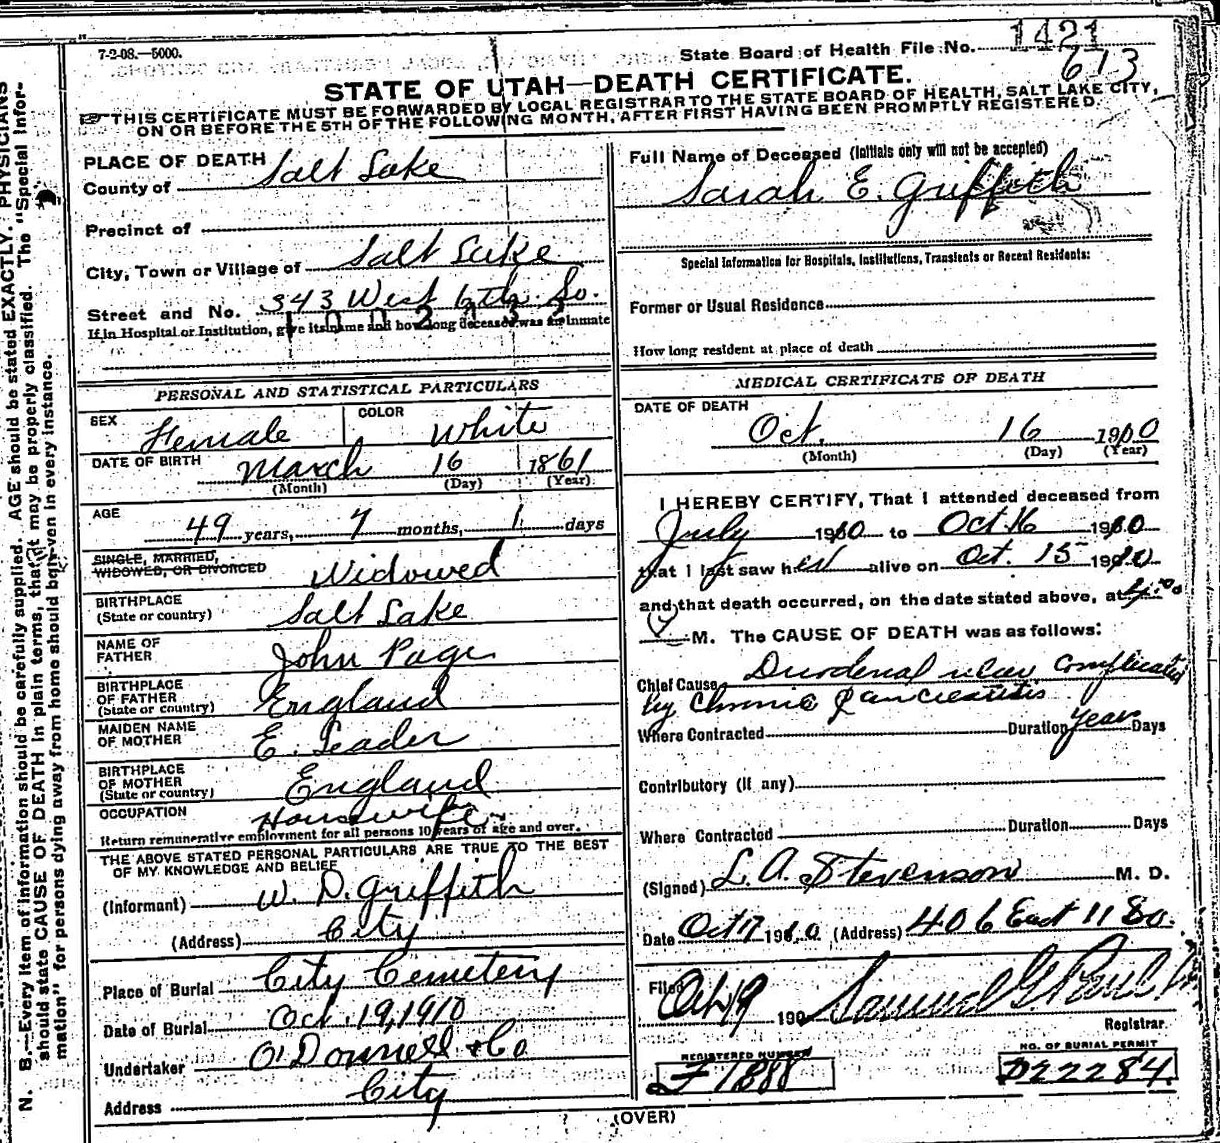 7-2-08.—5000.
State Board of Health File No. 1421
613
STATE OF UTAH—DEATH CERTIFICATE.
THIS CERTIFICATE MUST BE FORWARDED BY LOCAL REGISTRAR TO THE STATE BOARD OF HEALTH, SALT LAKE CITY,
ON OR BEFORE THE 5TH OF THE FOLLOWING MONTH, AFTER FIRST HAVING BEEN PROMPTLY REGISTERED.
PLACE OF DEATH
County of Salt Lake
Precinct of
City, Town or Village of Salt Lake
Street and No. 343 West 6th So.
If in Hospital or Institution, give its name and how long deceased was an inmate
PERSONAL AND STATISTICAL PARTICULARS
SEX Female COLOR White
DATE OF BIRTH March 16 1861
(Month) (Day) (Year)
AGE 49 years, 7 months, 1 days
SINGLE, MARRIED,
WIDOWED, OR DIVORCED Widowed
BIRTHPLACE
(State or country) Salt Lake
NAME OF
FATHER John Page
BIRTHPLACE
OF FATHER
(State or country) England
MAIDEN NAME
OF MOTHER E. Leader
BIRTHPLACE
OF MOTHER
(State or country) England
OCCUPATION Housewife
Return remunerative employment for all persons 10 years of age and over.
THE ABOVE STATED PERSONAL PARTICULARS ARE TRUE TO THE BEST
OF MY KNOWLEDGE AND BELIEF
(Informant) W. D. Griffith
(Address) City
Place of Burial City Cemetery
Date of Burial Oct. 19, 1910
Undertaker O'Donnell & Co
Address City
Full Name of Deceased (Initials only will not be accepted)
Sarah E. Griffith
Special Information for Hospitals, Institutions, Transients or Recent Residents:
Former or Usual Residence
How long resident at place of death
MEDICAL CERTIFICATE OF DEATH
DATE OF DEATH
Oct. 16 1910
(Month) (Day) (Year)
I HEREBY CERTIFY, That I attended deceased from
July 1910 to Oct 16 1910
that I last saw her alive on Oct. 15 1910
and that death occurred, on the date stated above, at 4.00
M. The CAUSE OF DEATH was as follows:
Chief Cause Duodenal ulcer complicated
by Chronic Pancreatitis
Where Contracted Duration Years Days
Contributory (if any)
Where Contracted Duration Days
(Signed) L. A. Stevenson M. D.
Date Oct 17 1910 (Address) 406 East 11 So.
Filed Oct 19 190
Samuel G. Paul
Registrar.
REGISTERED NUMBER
F 1888
NO. OF BURIAL PERMIT
D22284.
(OVER)
N. B.—Every item of information should be carefully supplied. AGE should be stated EXACTLY. PHYSICIANS
should state CAUSE OF DEATH in plain terms, that it may be properly classified. The "Special Infor-
mation" for persons dying away from home should be given in every instance.